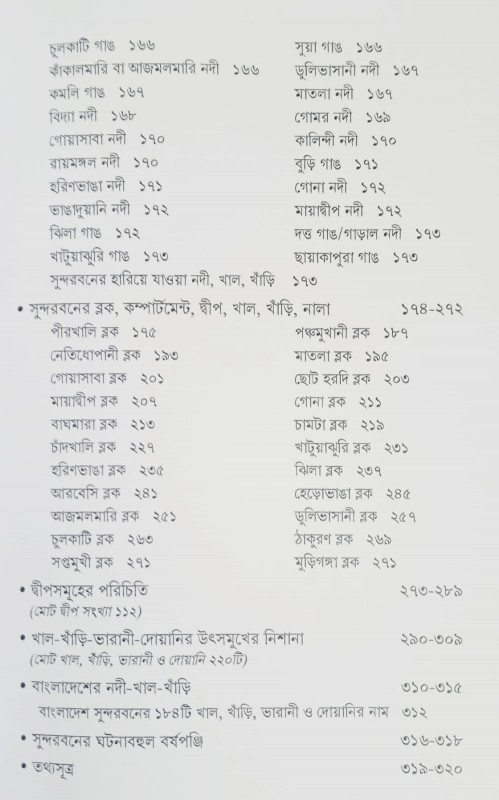 চুলকাটি গাঙ ১৬৬ সুয়া গাঙ ১৬৬
কাঁকালমারি বা আজমলমারি নদী ১৬৬ ডুলিভাসানী নদী ১৬৭
কমলি গাঙ ১৬৭ মাতলা নদী ১৬৭
বিদ্যা নদী ১৬৮ গোমর নদী ১৬৯
গোয়াসাবা নদী ১৭০ কালিন্দী নদী ১৭০
রায়মঙ্গল নদী ১৭০ বুড়ি গাঙ ১৭১
হরিণভাঙা নদী ১৭১ গোনা নদী ১৭২
ভাঙাদুয়ানি নদী ১৭২ মায়াদ্বীপ নদী ১৭২
ঝিলা গাঙ ১৭২ দত্ত গাঙ/গাড়াল নদী ১৭৩
খাটুয়াঝুরি গাঙ ১৭৩ ছায়াকাপুরা গাঙ ১৭৩
সুন্দরবনের হারিয়ে যাওয়া নদী, খাল, খাঁড়ি ১৭৩
• সুন্দরবনের ব্লক, কম্পার্টমেন্ট, দ্বীপ, খাল, খাঁড়ি, নালা ১৭৪-২৭২
পীরখালি ব্লক ১৭৫ পঞ্চমুখানী ব্লক ১৮৭
নেতিধোপানী ব্লক ১৯৩ মাতলা ব্লক ১৯৫
গোয়াসাবা ব্লক ২০১ ছোট হরদি ব্লক ২০৩
মায়াদ্বীপ ব্লক ২০৭ গোনা ব্লক ২১১
বাঘমারা ব্লক ২১৩ চামটা ব্লক ২১৯
চাঁদখালি ব্লক ২২৭ খাটুয়াঝুরি ব্লক ২৩১
হরিণভাঙা ব্লক ২৩৫ ঝিলা ব্লক ২৩৭
আরবেসি ব্লক ২৪১ হেড়োভাঙা ব্লক ২৪৫
আজমলমারি ব্লক ২৫১ ডুলিভাসানী ব্লক ২৫৭
চুলকাটি ব্লক ২৬৩ ঠাকুরণ ব্লক ২৬৯
সপ্তমুখী ব্লক ২৭১ মুড়িগঙ্গা ব্লক ২৭১
• দ্বীপসমূহের পরিচিতি ২৭৩-২৮৯
(মোট দ্বীপ সংখ্যা ১১২)
• খাল-খাঁড়ি-ভারানী-দোয়ানির উৎসমুখের নিশানা ২৯০-৩০৯
(মোট খাল, খাঁড়ি, ভারানী ও দোয়ানি ২২০টি)
• বাংলাদেশের নদী-খাল-খাঁড়ি ৩১০-৩১৫
বাংলাদেশ সুন্দরবনের ১৮৪টি খাল, খাঁড়ি, ভারানী ও দোয়ানির নাম ৩১২
• সুন্দরবনের ঘটনাবহুল বর্ষপঞ্জি ৩১৬-৩১৮
• তথ্যসূত্র ৩১৯-৩২০